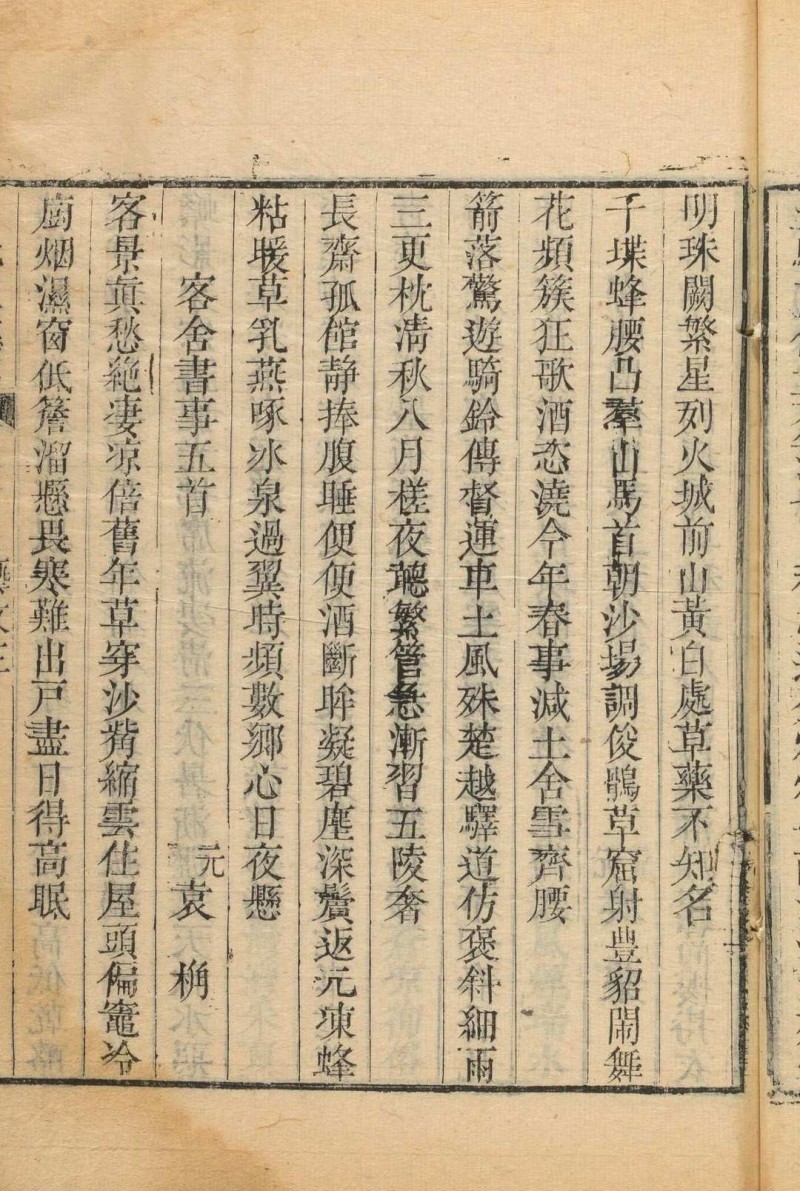 明珠闕繁星列火城前山黃白處草藥不知名
千堞蜂腰凸羣山馬首朝沙場調俊鶻草窟射豊貂鬧舞
花頻簇狂歌酒恣澆今年春事減土舍雪齊腰
箭落驚遊騎鈴傳督運車土風殊楚越驛道仿褒斜細雨
三更枕凊秋八月槎夜聽繁管急漸習五陵奢
長齋孤館静捧腹睡便便酒斷眸凝碧塵深鬢返元凍蜂
粘暖草乳燕啄冰泉過翼時頻數鄉心日夜懸
客舍書事五首 元袁桷
客景眞愁絶凄凉倍舊年草穿沙觜縮雲住屋頭偏竈冷
廚烟濕窗低簷溜懸畏寒難出戸盡日得高眠